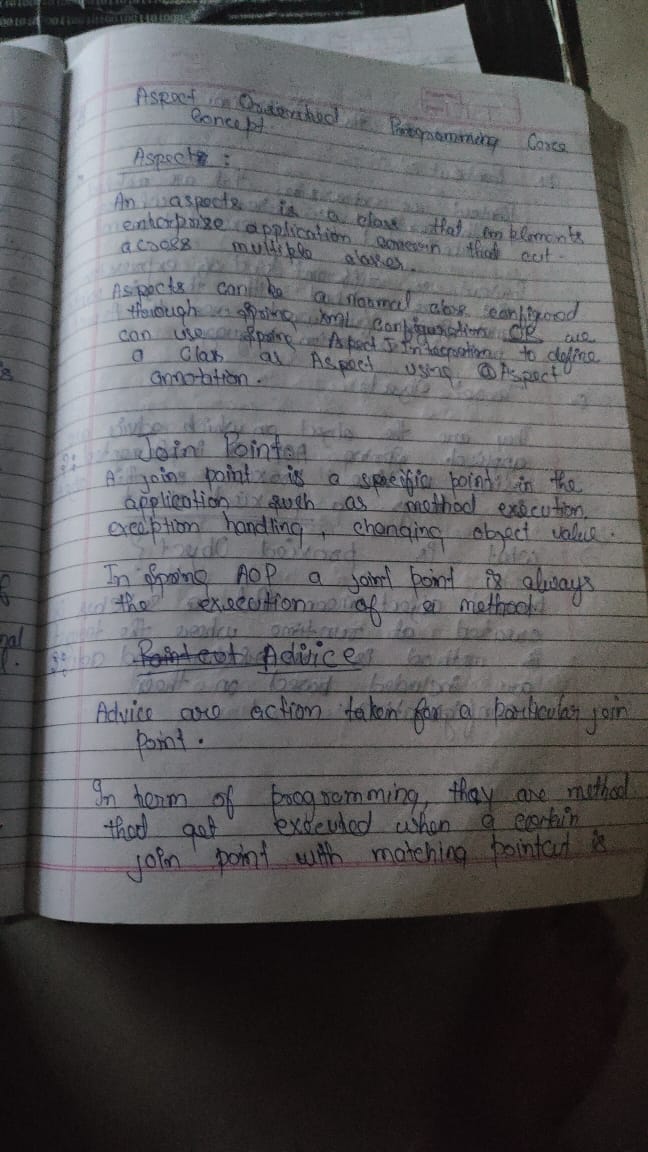 Aspect Oriented Programming Core
Concept
Aspects :
An aspects is a class that implements
enterprise application concern that cut
across multiple classes.
Aspects can be a normal class configured
through spring XML configuration OR we
can use spring Aspect J Integration to define
a Class as Aspect using @Aspect
annotation.
Join Points
A join point is a specific point in the
application such as method execution,
exception handling, changing object value.
In spring AOP a joint point is always
the execution of a method.
Pointcut Advice
Advice are action taken for a particular join
point.
In term of programming, they are method
that get executed when a certain
join point with matching pointcut is